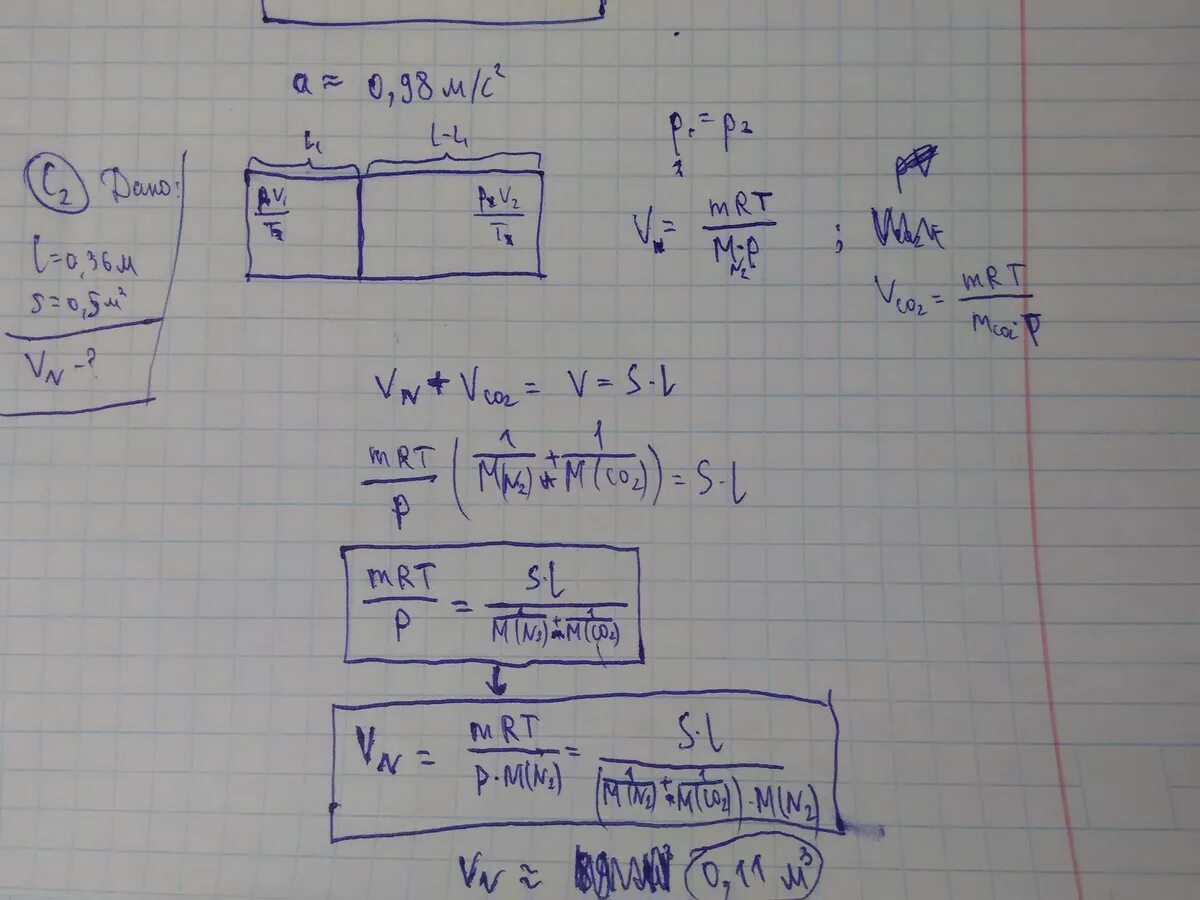 a ≈ 0,98 м/с²
C₂ Дано:
l = 0,36 м
S = 0,5 м²
V_N - ?
l₁
l-l₁
p₁ = p₂
V = mRT / (M_N₂ · p) ;
V_CO₂ = mRT / (M_CO₂ · p)
V_N + V_CO₂ = V = S·l
mRT / p (1 / M(N₂) + 1 / M(CO₂)) = S·l
mRT / p = S·l / (1 / M(N₂) + 1 / M(CO₂))
V_N = mRT / (p·M(N₂)) = S·l / ((1 / M(N₂) + 1 / M(CO₂)) · M(N₂))
V_N ≈ 0,11 м³